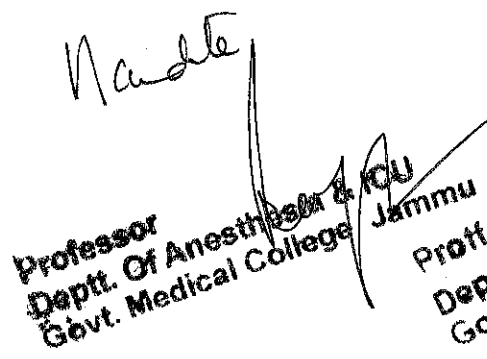 Professor
Deptt. Of Anesthesia & ICU
Govt. Medical College Jammu
Proff
Dep
Go